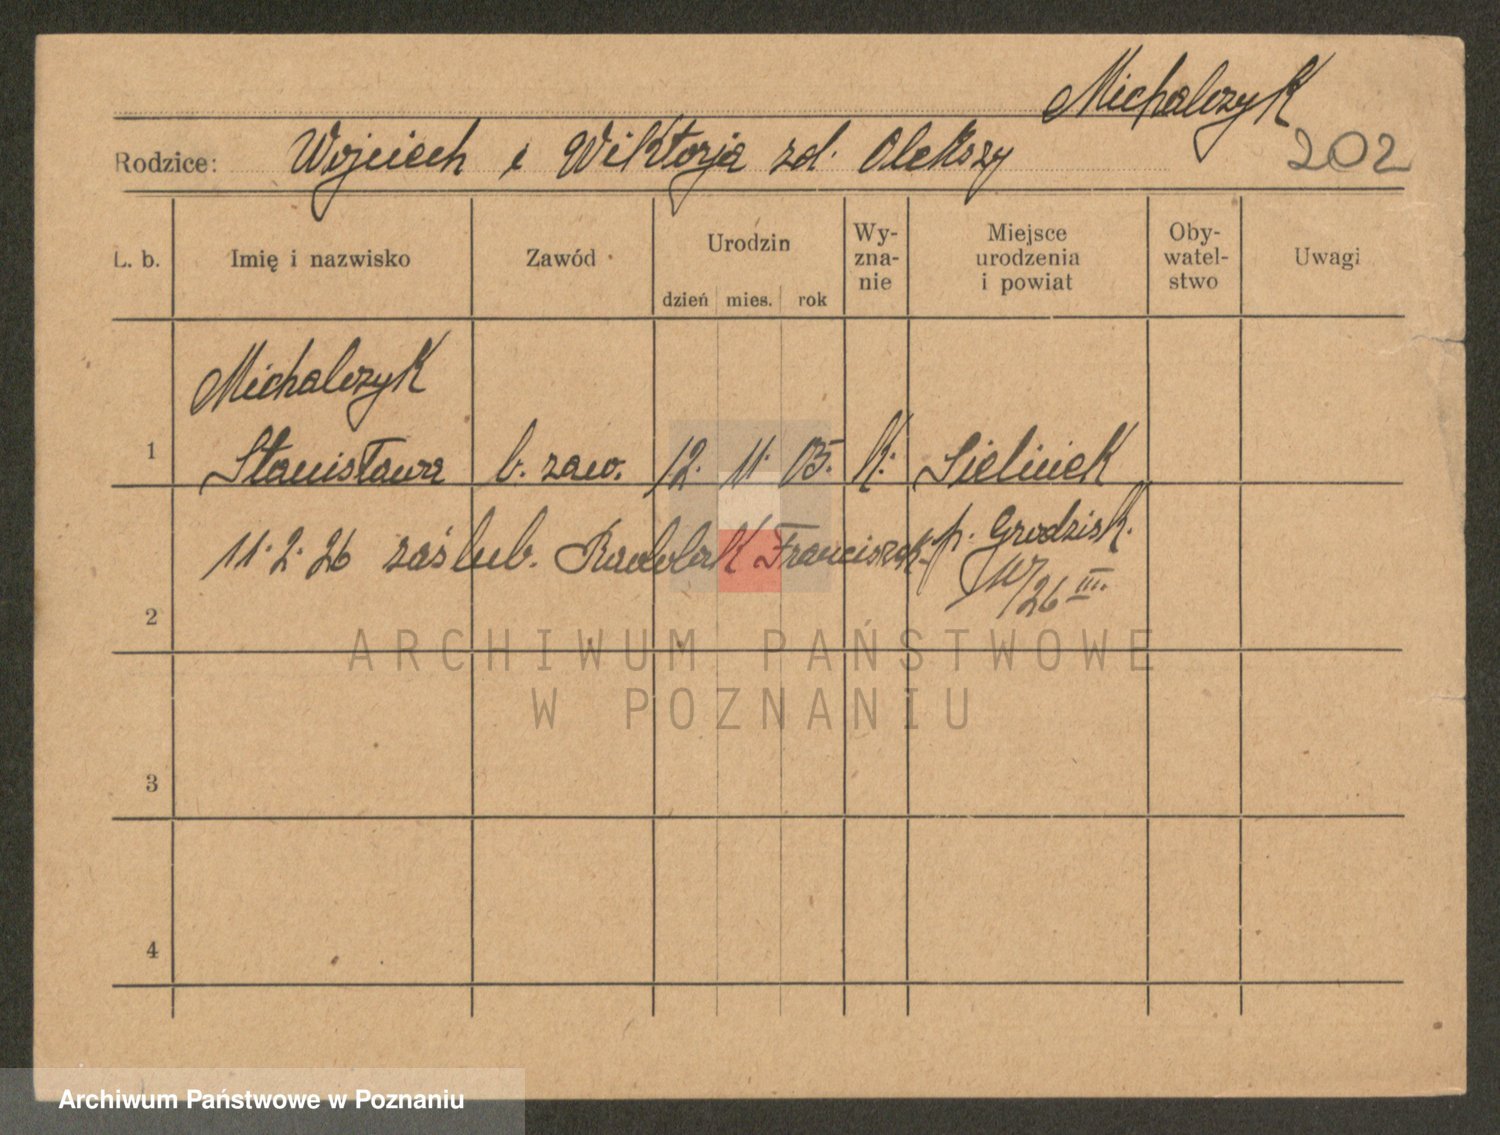 Michalczyk
Rodzice: Wojciech i Wiktorja zd. Olekszy
202
L. b.
Imię i nazwisko
Zawód
Urodzin
dzień mies. rok
Wy-
zna-
nie
Miejsce
urodzenia
i powiat
Oby-
watel-
stwo
Uwagi
Michalczyk
1 Stanisława b. zaw. 12. 11. 05. k. Sielinek
p. Grodzisk.
11. 2. 26 zaślub. Franciszek
2
26 III.
ARCHIWUM PAŃSTWOWE
W POZNANIU
3
4
Archiwum Państwowe w Poznaniu